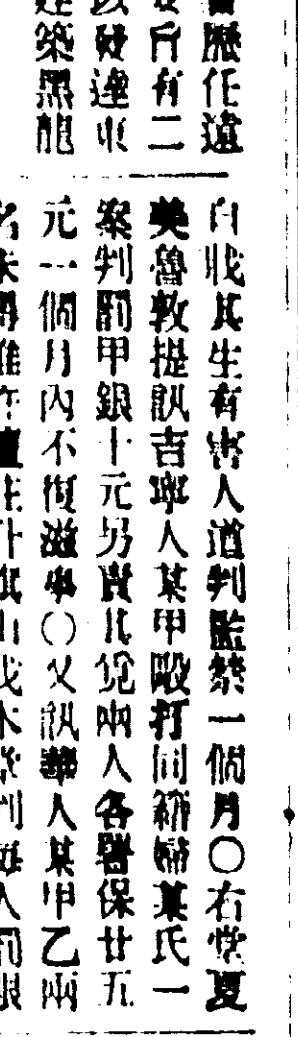 歷任遼
旨有二
發達東
築黑龍
自戕其生有害人道判監禁一個月〇右堂夏
美魯敦提訊吉寧人某甲毆打同籍婦某氏一
案判罰甲銀十元另責其兌兩人各署保廿五
元一個月內不復滋事〇又訊華人某甲乙兩